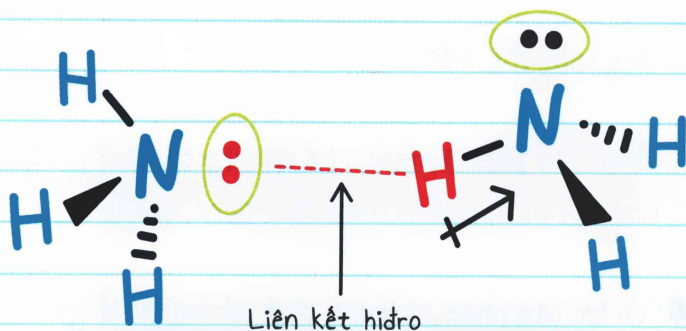 H
N
H
H
H
N
H
H
Liên kết hiđro